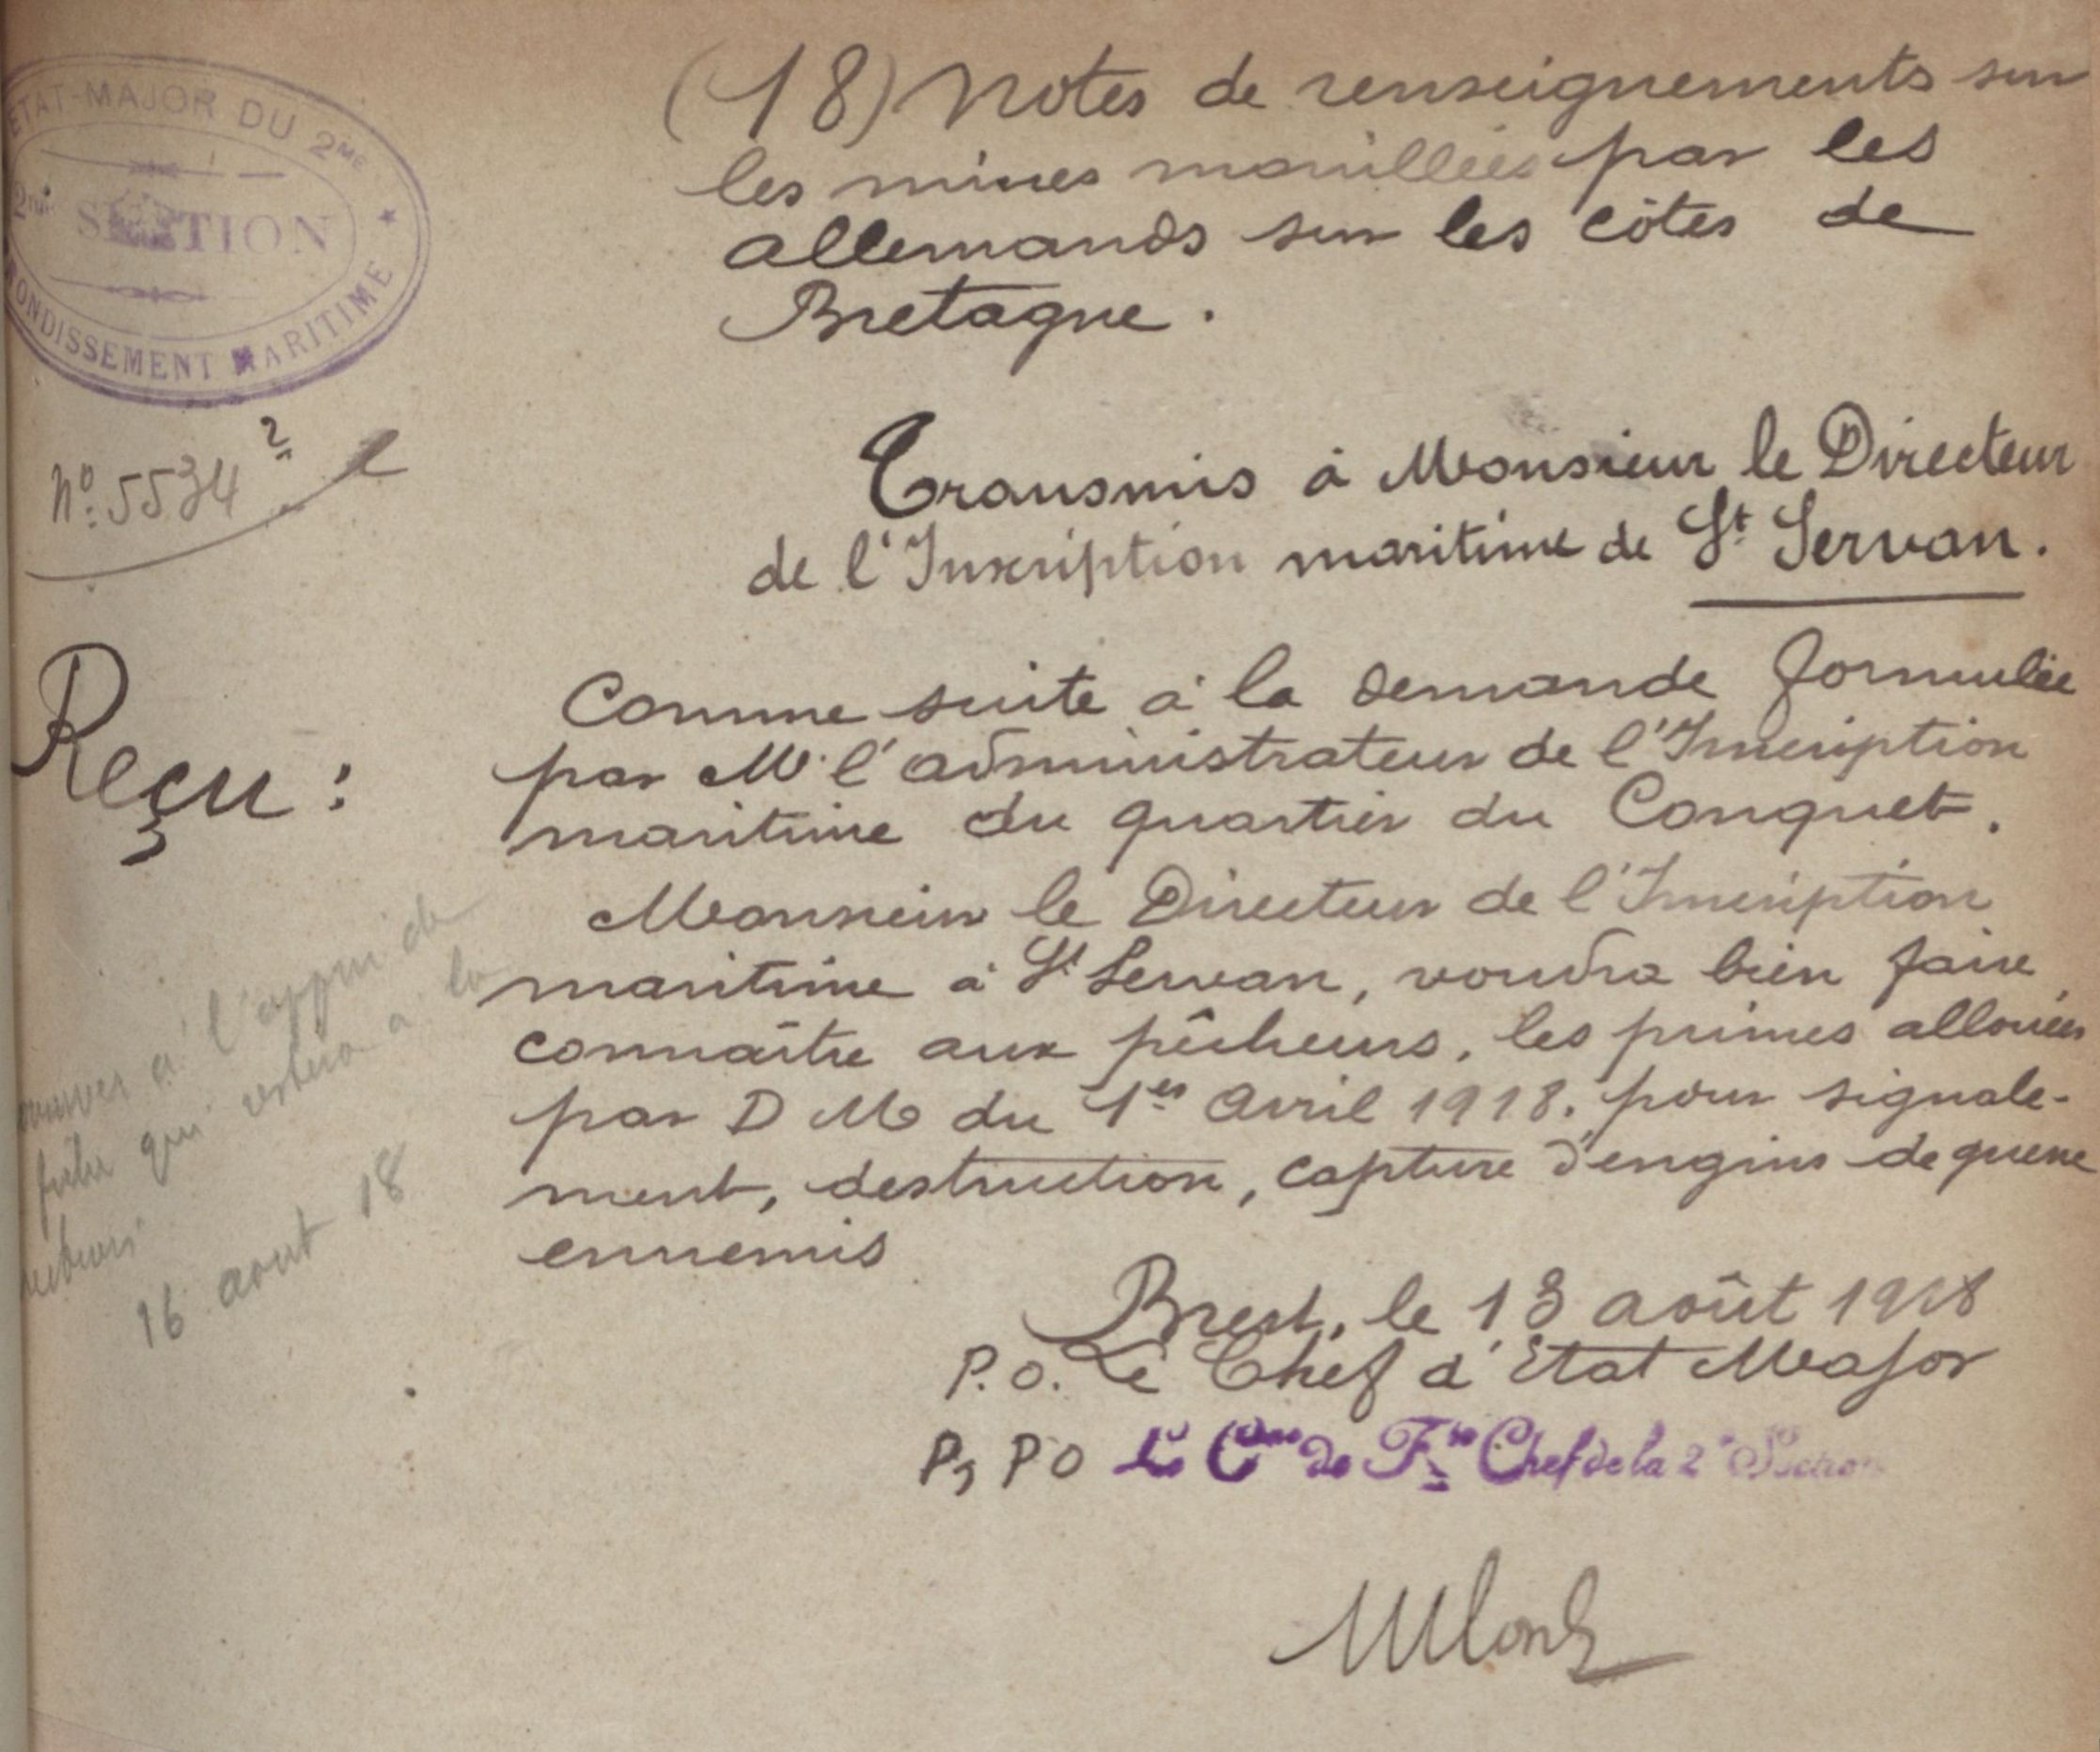 (18) Notes de renseignements sur
les mines mouillées par les
allemands sur les côtes de
Bretagne.
ETAT-MAJOR DU 2ME
2me SECTION
ONDISSEMENT MARITIME
No. 5534 2
Transmis à Monsieur le Directeur
de l'Inscription maritime de St Servan.
Reçu :
Comme suite à la demande formulée
par Mr l'administrateur de l'Inscription
maritime du quartier du Conquet.
Monsieur le Directeur de l'Inscription
maritime à St Servan, voudra bien faire
connaître aux pêcheurs, les primes allouées
par D M du 1er Avril 1918. pour signale-
ment, destruction, capture d'engins de guerre
ennemis
à l'appui de
qui restera à la
16 aout 18
Brest, le 13 août 1918
P.O. Le Chef d'Etat Major
P, P O Le Cne de Fte Chef de la 2e Section